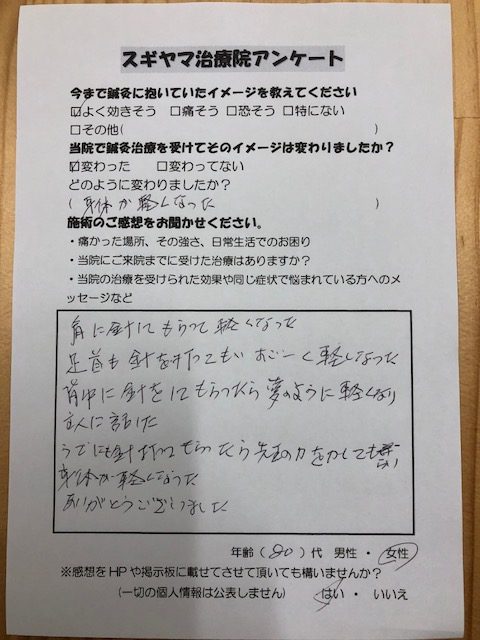 スギヤマ治療院アンケート
今まで鍼灸に抱いていたイメージを教えてください
☑よく効きそう □痛そう □恐そう □特にない
□その他( )
当院で鍼灸治療を受けてそのイメージは変わりましたか?
☑変わった □変わってない
どのように変わりましたか?
( 身体が軽くなった )
施術のご感想をお聞かせください。
・痛かった場所、その強さ、日常生活でのお困り
・当院にご来院までに受けた治療はありますか?
・当院の治療を受けられた効果や同じ症状で悩まれている方へのメ
ッセージなど
肩に針してもらって軽くなった
足首も針を すごーく軽くなった
背中に針をしてもらったら夢のように軽くなり
主人に話した
うでにも針打ってもらったら先生の力をかしても
身体が軽くなった
ありがとうございました
年齢(80)代 男性・女性
※感想をHPや掲示板に載せてさせて頂いても構いませんか?
(一切の個人情報は公表しません) はい・いいえ